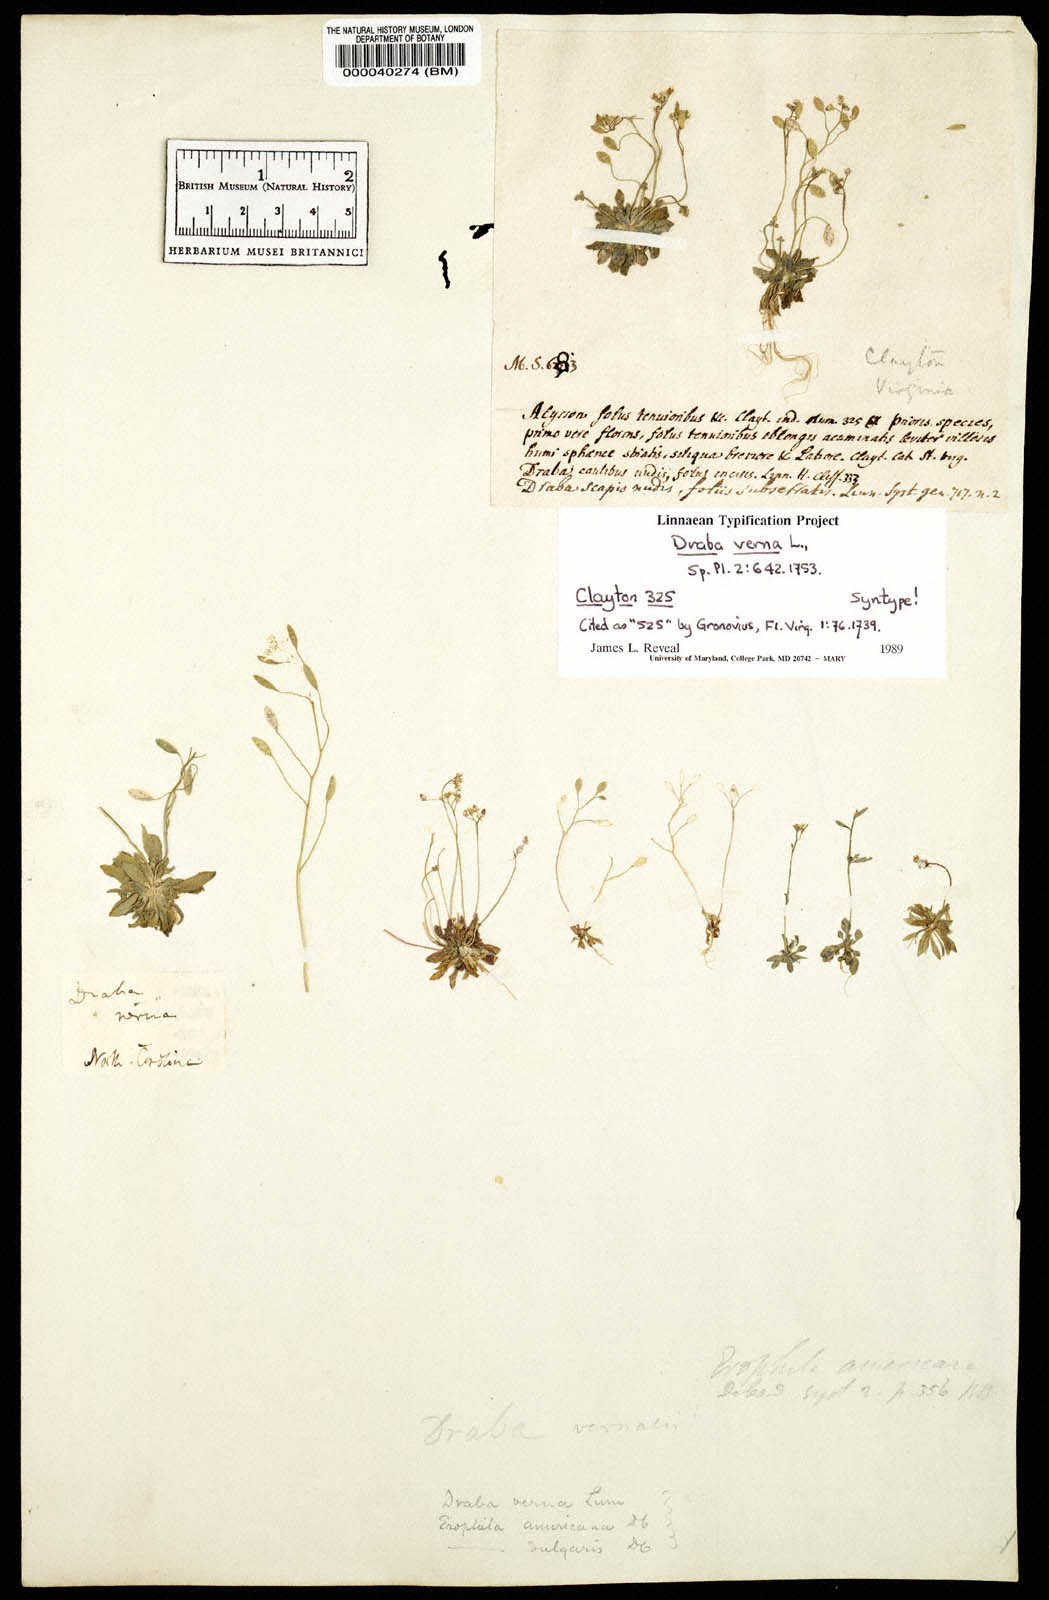 THE NATURAL HISTORY MUSEUM, LONDON
DEPARTMENT OF BOTANY
000040274 (BM)
1 2
BRITISH MUSEUM (NATURAL HISTORY)
1 2 3 4 5
HERBARIUM MUSEI BRITANNICI
Clayton
Virginia
M. S.
Alysson foliis tenuioribus &c. Clayt. ind. num. 325 Prioris species,
primo vere florens, foliis tenuioribus oblongis acuminatis leviter villosis
humi sphænce stratis, siliqua breviore & Latiore. Clayt. Cat. St. Virg.
Draba, caulibus nudis, foliis incisis. Linn. H. Cliff. 333
Draba scapis nudis, foliis subserratis. Linn. Syst. gen. 717. n. 2
Linnaean Typification Project
Draba verna L.,
Sp. Pl. 2: 642. 1753.
Clayton 325 Syntype!
Cited as "525" by Gronovius, Fl. Virg. 1: 76. 1739.
James L. Reveal 1989
University of Maryland, College Park, MD 20742 – MARY
Draba
verna
North Carolina
Erophila americana
Decand Syst 2. p. 356
Draba vernalis
Draba verna Linn
Erophila americana DC
—— vulgaris DC